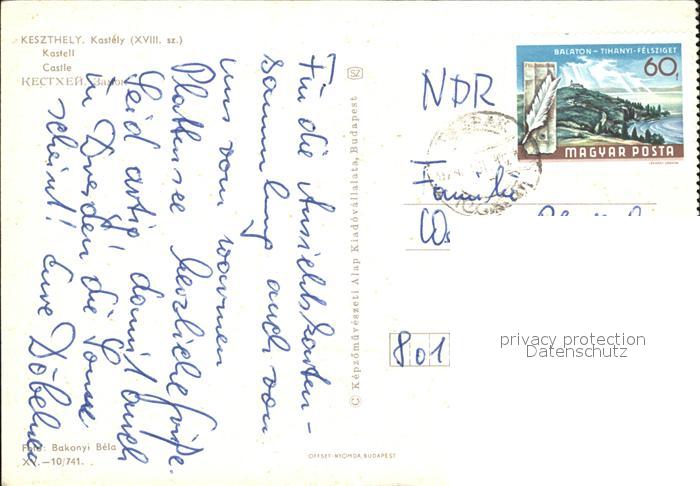 KESZTHELY. Kastély (XVIII. sz.)
Kastell
Castle
КЕСТХЕЙ. Замок
Für die Ansichtskarten-
sammlung auch von
uns vom warmen
Plattensee herzliche Grüße.
Seid artig, damit auch
in Dresden die Sonne
scheint! Eure Döbelner
Foto: Bakonyi Béla
XX.—10/741.
SZ
© Képzőművészeti Alap Kiadóvállalata, Budapest
OFFSET-NYOMDA, BUDAPEST
BALATON – TIHANYI-FÉLSZIGET
60f
MAGYAR POSTA
NDR
Familie
801
privacy protection
Datenschutz